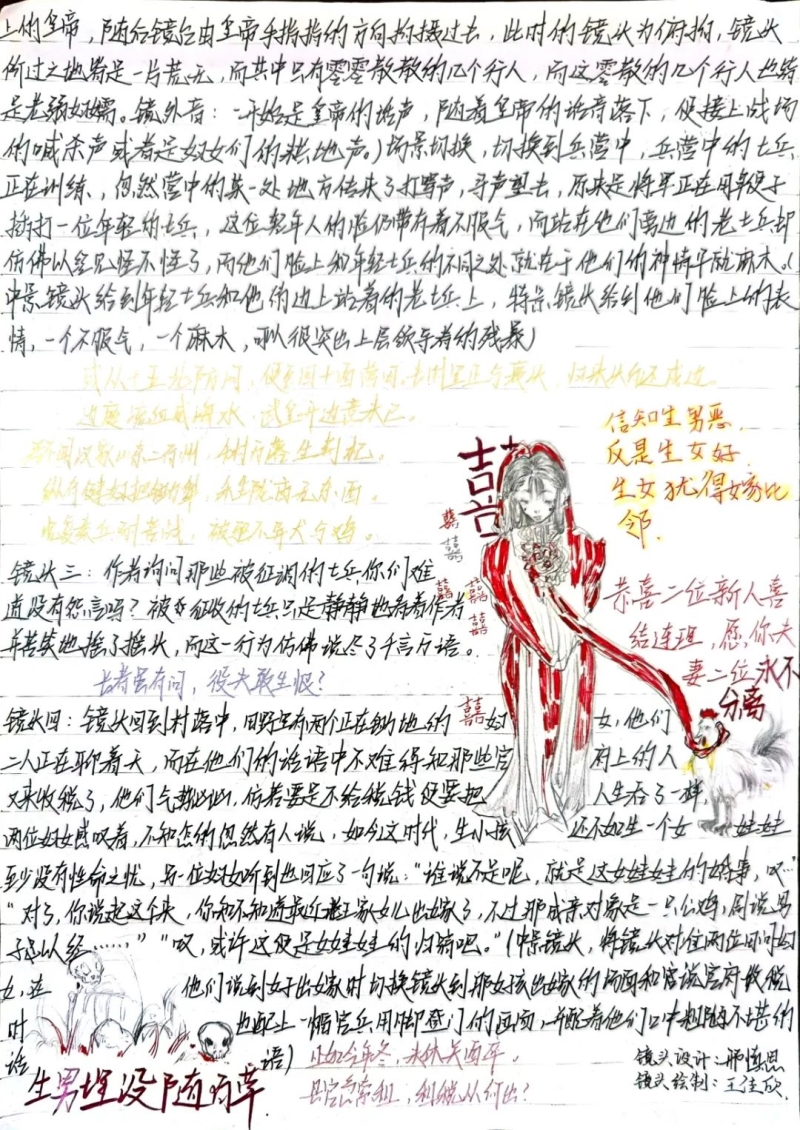 上的皇帝，随后镜头由皇帝手指指的方向拍摄过去，此时的镜头为俯拍，镜头
俯过之地皆是一片荒芜，而其中只有零零散散的几个行人，而这零散的几个行人也皆
是老弱妇孺。镜外音：一开始是皇帝的话声，随着皇帝的话音落下，便接上战场
的喊杀声或者是妇女们的耕地声。）场景切换，切换到兵营中，兵营中的士兵
正在训练，忽然营中的某一处地方传来了打骂声，寻声望去，原来是将军正在用鞭子
抽打一位年轻的士兵，这位年轻人的脸仍带有着不服气，而站在他们旁边的老士兵却
仿佛以经见怪不怪了，而他们脸上和年轻士兵的不同之处就在于他们的神情早就麻木。（
中景镜头给到年轻士兵和他的边上站着的老士兵上，特景镜头给到他们脸上的表
情，一个不服气，一个麻木，可以很突出上层领导者的残暴）
或从十五北防河，便至四十西营田。去时里正与裹头，归来头白还戍边。
边庭流血成海水，武皇开边意未已。
君不闻汉家山东二百州，千村万落生荆杞。
纵有健妇把锄犁，禾生陇亩无东西。
况复秦兵耐苦战，被驱不异犬与鸡。
信知生男恶，
反是生女好
生女犹得嫁比
邻.
囍
镜头三：作者询问那些被征调的士兵你们难
道没有怨言吗？被征收的士兵只是静静地看着作者
并苦笑地摇了摇头，而这一行为仿佛说尽了千言万语。
恭喜二位新人喜
结连理，愿你夫
妻二位永不
分离
长者虽有问，役夫敢生恨？
镜头四：镜头回到村落中，田野里有两个正在锄地的妇女，他们
二人正在聊着天，而在他们的话语中不难得知那些官府上的人
又来收税了，他们气势汹汹，仿若要是不给税钱便要把人生吞了一样，
两位妇女感叹着，不知怎的忽然有人说，如今这时代，生小孩还不如生一个女娃娃
至少没有性命之忧，另一位妇女听到也回应了一句说："谁说不是呢，就是这女娃娃的婚事，叹…"
"对了，你说起这个来，你知不知道最近老王家女儿出嫁了，不过那成亲对象是一只公鸡，因说男
子已以经……""叹，或许这便是女娃娃的归宿吧。"（中景镜头，将镜头对准两位田间妇
女，在他们说到女子出嫁时切换镜头到那女孩出嫁的场面和官说官府收税
时也配上一幅官兵用脚登门的画面，并配着他们口中粗鄙不堪的
话语）
且如今年冬，未休关西卒。
县官急索租，租税从何出？
生男埋没随百草
镜头设计：邢慎思
镜头绘制：王佳欣